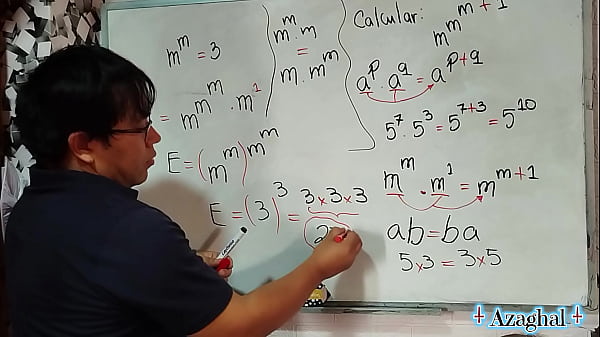 m^m = 3
= m^{m^m · m^1}
E = (m^m)^{m^m}
E = (3)^3 = 3×3×3
m^{m·m}
=
m·m^m
Calcular:
m^{m^{m+1}}
a^p · a^q = a^{p+q}
5^7 · 5^3 = 5^{7+3} = 5^{10}
m^m · m^1 = m^{m+1}
ab = ba
5×3 = 3×5
Azaghal